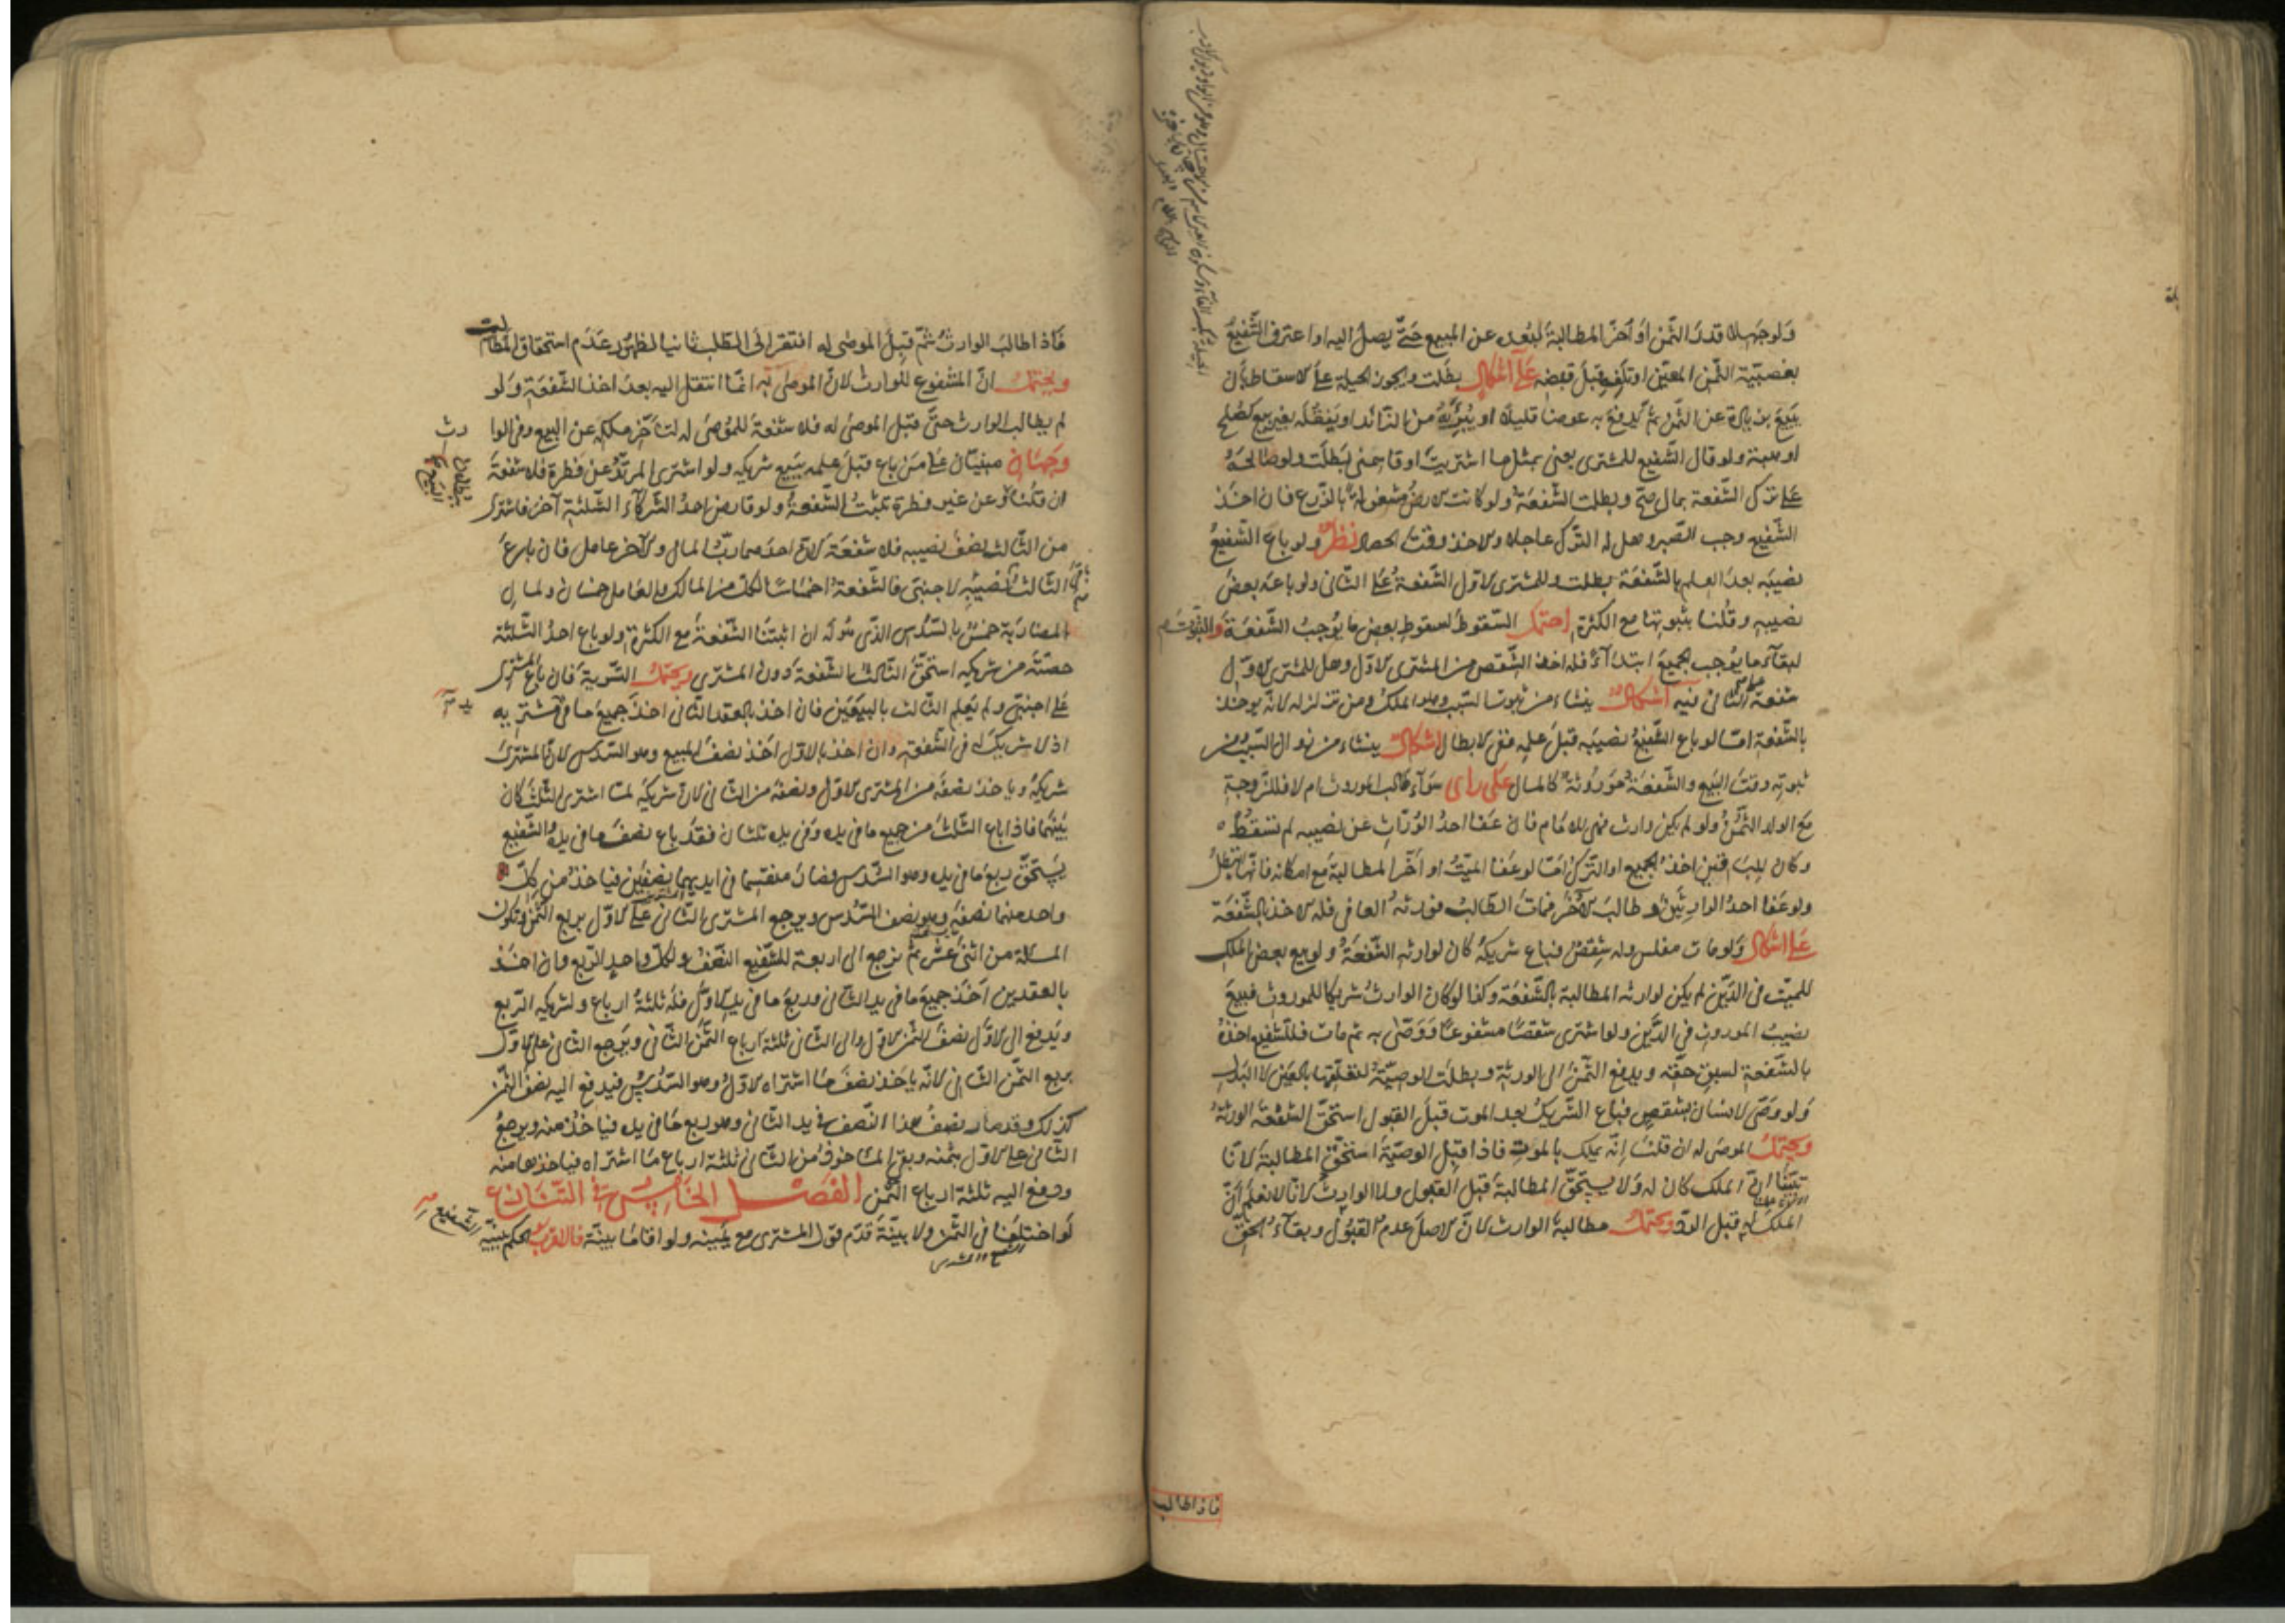 ولو جهلا قدر الثمن او اخر المطالبة لبعده عن المبيع حتى يصل اليه او اعترف الشفيع
بغصبية الثمن المعين او تلف قبل قبضه على اشكال بطلت ويجوز الحيلة على الاسقاط بان
يبيع بزيادة عن الثمن ثم يدفع به عوضا قليلا او يبرئه من الزائد او ينقله بغير بيع كصلح
او هبة ولو قال الشفيع للمشترى بعنى بمثل ما اشتريت او قاسمنى بطلت ولو صالحه
على ترك الشفعة بمال صح وبطلت الشفعة ولو كانت الارض مشغولة بالزرع فان اخذ
الشفيع وجب الصبر وهل له الترك عاجلا والاخذ وقت الحصاد نظر ولو باع الشفيع
نصيبه بعد العلم بالشفعة بطلت وللمشترى الاول الشفعة على الثانى ولو باع بعض
نصيبه وقلنا بثبوتها مع الكثرة احتمل السقوط لسقوط بعض ما يوجب الشفعة والثبوت
لبقاء ما يوجب الجميع ابتداء فله اخذ الشقص من المشترى الاول وهل للمشترى الاول
شفعة على الثانى فيه اشكال ينشاء من ثبوت السبب وهو الملك ومن تزلزله لانه يوخذ
بالشفعة اما لو باع الشفيع نصيبه قبل علمه ففى الابطال اشكال ينشاء من زوال السبب ومن
ثبوته وقت البيع والشفعة موروثة كالمال على راى سواء طالب الموروث ام لا فللزوجة
مع الولد الثمن ولو لم يكن وارث فهى للامام فان عفا احد الوراث عن نصيبه لم تسقط
وكان للباقين اخذ الجميع او الترك اما لو عفا الميت او اخر المطالبة مع امكانه فانها تبطل
ولو عفا احد الوارثين وطالب الاخر فمات الطالب فورثه العافى فله الاخذ بالشفعة
على اشكال ولو مات مفلس وله شقص فباع شريكه كان لوارثه الشفعة ولو بيع بعض الملك
للميت فى الدين لم يكن لوارثه المطالبة بالشفعة وكذا لو كان الوارث شريكا للموروث فبيع
نصيب الموروث فى الدين ولو اشترى شقصا مشفوعا ووصى به ثم مات فللشفيع اخذه
بالشفعة لسبق حقه ويدفع الثمن الى الورثة وبطلت الوصية لتعلقها بالعين لا البدل
ولو وصى لانسان بشقص فباع الشريك بعد الموت قبل القبول استحق الشفعة الورثة
ويحتمل الموصى له ان قلنا انه يملك بالموت فاذا قبل الوصية استحق المطالبة لانا
تبينا ان الملك كان له ولا يستحق المطالبة قبل القبول ولا الوارث لانا لا نعلم ان
الملك له قبل الرد ويحتمل مطالبة الوارث لان الاصل عدم القبول وبقاء الحق
فاذا طالب
فاذا طالب الوارث ثم قبل الموصى له افتقر الى الطلب ثانيا لظهور عدم استحقاق المطالب
ويحتمل ان المشفوع للوارث لان الموصى به انما انتقل اليه بعد اخذ الشفعة ولو
لم يطالب الوارث حتى قبل الموصى له فلا شفعة للموصى له لتاخر ملكه عن البيع وفى الوارث
وجهان مبنيان على من باع قبل علمه ببيع شريكه ولو اشترى المرتد عن فطرة فلا شفعة
ان قلنا او عن غير فطرة تثبت الشفعة ولو قارض احد الشركاء الثلثة آخر فاشترى
من الثالث نصف نصيبه فلا شفعة لان احدهما رب المال والاخر عامل فان باع
الثالث نصيبه لاجنبى فالشفعة اخماسا لكل من المالك والعامل خمسان ولمال
المضاربة خمس بالسدس الذى هو له ان اثبتنا الشفعة مع الكثرة ولو باع احد الثلثة
حصته من شريكه استحق الثالث الشفعة دون المشترى ويحتمل التسوية فان باع المشترى
على اجنبى ولم يعلم الثالث بالبيعين فان اخذ بالعقد الثانى اخذ جميع ما فى يد مشتريه
اذ لا شريك له فى الشفعة وان اخذ بالاول اخذ نصف المبيع وهو السدس لان المشترى
شريكه وياخذ نصفه من المشترى الاول ونصفه من الثانى لان شريكه لما اشترى الثلث كان
بينهما فاذا باع الثلث من جميع ما فى يده وفى يده ثلثان فقد باع نصف ما فى يده والشفيع
يستحق ربع ما فى يده وهو السدس فصار منقسما فى ايديهما نصفين فياخذ من كل
واحد منهما نصفه وهو نصف السدس ويرجع المشترى الثانى على الاول بربع الثمن وتكون
المسالة من اثنى عشر ثم ترجع الى اربعة للشفيع النصف ولكل واحد الربع وان اخذ
بالعقدين اخذ جميع ما فى يد الثانى وربع ما فى يد الاول فله ثلثة ارباع ولشريكه الربع
ويدفع الى الاول نصف الثمن الاول والى الثانى ثلثة ارباع الثمن الثانى ويرجع الثانى على الاول
بربع الثمن الثانى لانه ياخذ نصف ما اشتراه الاول وهو السدس فيدفع اليه نصف الثمن
كذلك وقد صار نصف هذا النصف فى يد الثانى وهو ربع ما فى يده فياخذه منه ويرجع
الثانى على الاول بثمنه وبقى الماخوذ من الثانى ثلثة ارباع ما اشتراه فياخذها منه
ودفع اليه ثلثة ارباع الثمن الفصل الخامس فى التنازع
لو اختلفا فى الثمن ولا بينة قدم قول المشترى مع يمينه ولو اقاما بينة فالاقرب الحكم ببينة الشفيع